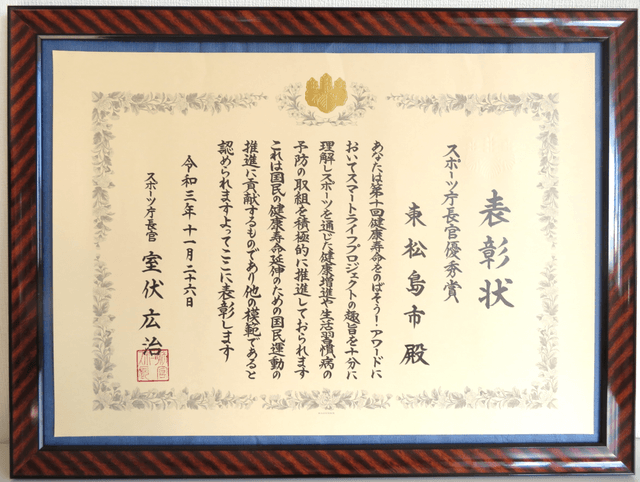 表彰状
スポーツ庁長官優秀賞
東松島市 殿
あなたは第十回健康寿命をのばそう！アワードに
おいてスマートライフプロジェクトの趣旨を十分に
理解しスポーツを通じた健康増進や生活習慣病の
予防の取組を積極的に推進しておられます
これは国民の健康寿命延伸のための国民運動の
推進に貢献するものであり他の模範であると
認められますよってここに表彰します
令和三年十一月二十六日
スポーツ庁長官 室伏広治